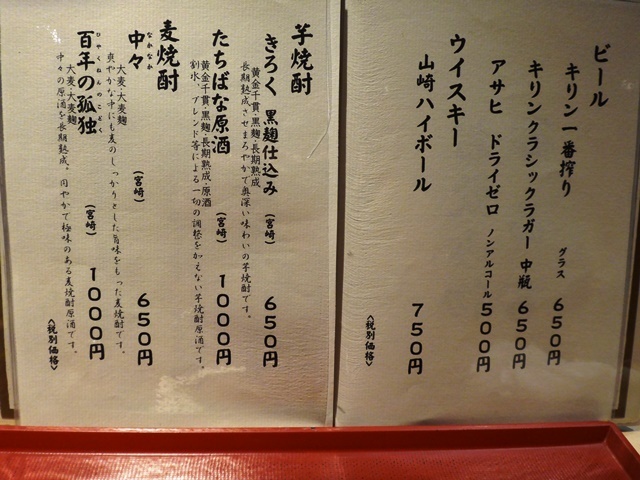 ビール
キリン一番搾り グラス 650円
キリンクラシックラガー 中瓶 650円
アサヒ ドライゼロ ノンアルコール 500円
ウイスキー
山崎ハイボール 750円
《税別価格》
芋焼酎
きろく 黒麹仕込み (宮崎) 650円
黄金千貫・黒麹・長期熟成
長期熟成させまろやかで奥深い味わいの芋焼酎です。
たちばな原酒 (宮崎) 1000円
黄金千貫・黒麹・長期熟成・原酒
割水、ブレンド等による一切の調整を加えない芋焼酎原酒です。
麦焼酎
中々 なかなか (宮崎) 650円
大麦・大麦麹
爽やかな中にも麦のしっかりとした旨味をもった麦焼酎です。
百年の孤独 ひゃくねんのこどく (宮崎) 1000円
大麦・大麦麹
中々の原酒を長期熟成。円やかで極味のある麦焼酎原酒です。
《税別価格》